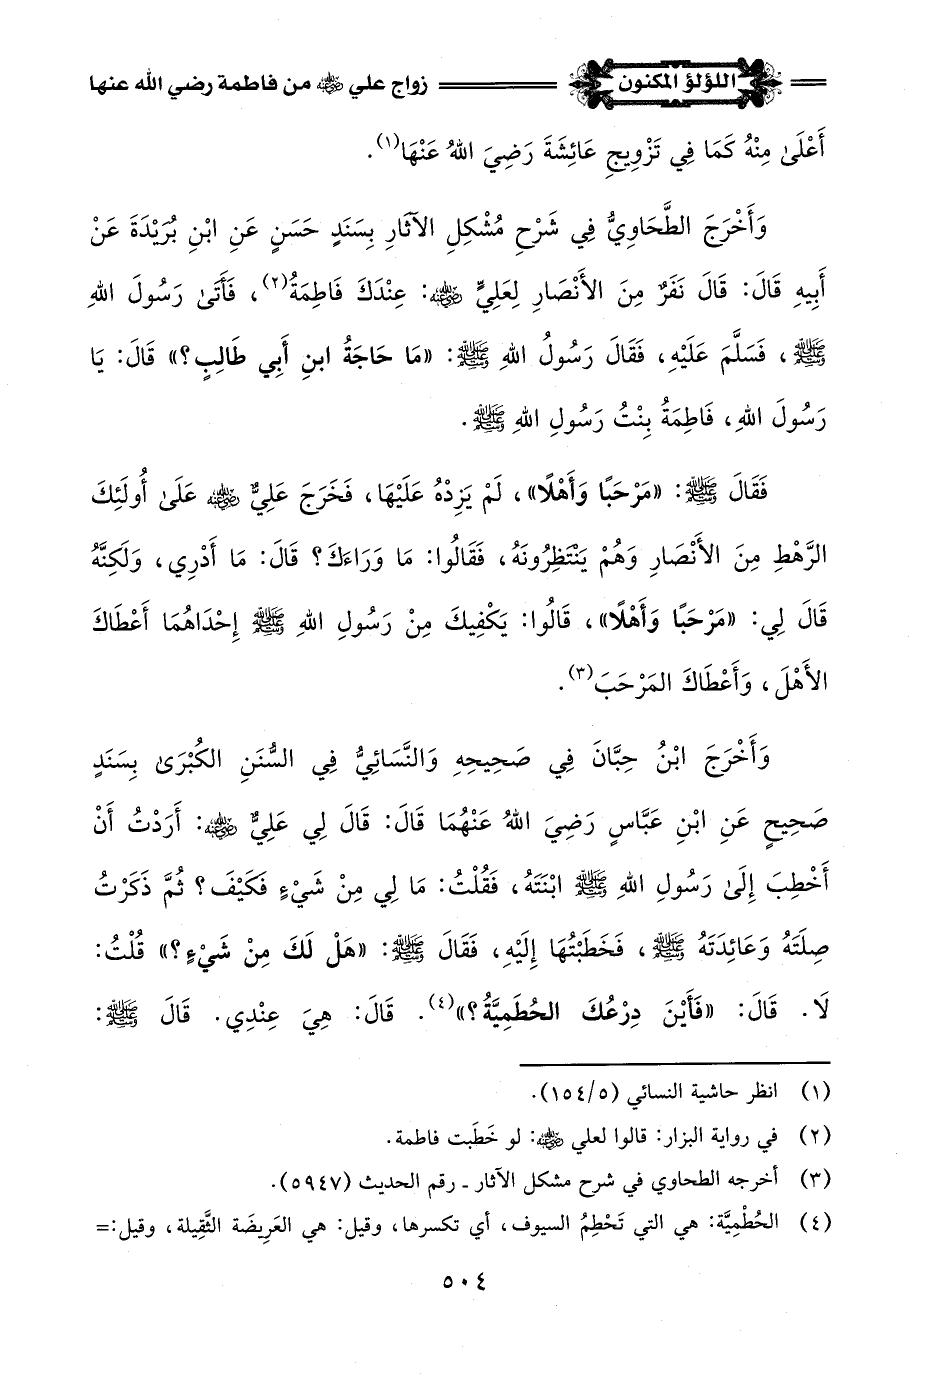 اللؤلؤ المكنون زواج علي رضي الله عنه من فاطمة رضي الله عنها
أَعْلَىٰ مِنْهُ كَمَا فِي تَزْوِيجِ عَائِشَةَ رَضِيَ اللهُ عَنْهَا(١).
وَأَخْرَجَ الطَّحَاوِيُّ فِي شَرْحِ مُشْكِلِ الآثَارِ بِسَنَدٍ حَسَنٍ عَنِ ابْنِ بُرَيْدَةَ عَنْ
أَبِيهِ قَالَ: قَالَ نَفَرٌ مِنَ الأَنْصَارِ لِعَلِيٍّ رضي الله عنه: عِنْدَكَ فَاطِمَةُ(٢)، فَأَتَىٰ رَسُولَ اللهِ
ﷺ، فَسَلَّمَ عَلَيْهِ، فَقَالَ رَسُولُ اللهِ ﷺ: «مَا حَاجَةُ ابنِ أَبِي طَالِبٍ؟» قَالَ: يَا
رَسُولَ اللهِ، فَاطِمَةُ بِنْتُ رَسُولِ اللهِ ﷺ.
فَقَالَ ﷺ: «مَرْحَبًا وَأَهْلًا»، لَمْ يَزِدْهُ عَلَيْهَا، فَخَرَجَ عَلِيٌّ رضي الله عنه عَلَىٰ أُولَئِكَ
الرَّهْطِ مِنَ الأَنْصَارِ وَهُمْ يَنْتَظِرُونَهُ، فَقَالُوا: مَا وَرَاءَكَ؟ قَالَ: مَا أَدْرِي، وَلَكِنَّهُ
قَالَ لِي: «مَرْحَبًا وَأَهْلًا»، قَالُوا: يَكْفِيكَ مِنْ رَسُولِ اللهِ ﷺ إِحْدَاهُمَا أَعْطَاكَ
الأَهْلَ، وَأَعْطَاكَ المَرْحَبَ(٣).
وَأَخْرَجَ ابْنُ حِبَّانَ فِي صَحِيحِهِ وَالنَّسَائِيُّ فِي السُّنَنِ الكُبْرَىٰ بِسَنَدٍ
صَحِيحٍ عَنِ ابْنِ عَبَّاسٍ رَضِيَ اللهُ عَنْهُمَا قَالَ: قَالَ لِي عَلِيٌّ رضي الله عنه: أَرَدْتُ أَنْ
أَخْطِبَ إِلَىٰ رَسُولِ اللهِ ﷺ ابْنَتَهُ، فَقُلْتُ: مَا لِي مِنْ شَيْءٍ فَكَيْفَ؟ ثُمَّ ذَكَرْتُ
صِلَتَهُ وَعَائِدَتَهُ ﷺ، فَخَطَبْتُهَا إِلَيْهِ، فَقَالَ ﷺ: «هَلْ لَكَ مِنْ شَيْءٍ؟» قُلْتُ:
لَا. قَالَ: «فَأَيْنَ دِرْعُكَ الحُطَمِيَّةُ؟»(٤). قَالَ: هِيَ عِنْدِي. قَالَ ﷺ:
(١) انظر حاشية النسائي (١٥٤/٥).
(٢) في رواية البزار: قالوا لعلي رضي الله عنه: لو خَطَبت فاطمة.
(٣) أخرجه الطحاوي في شرح مشكل الآثار ـ رقم الحديث (٥٩٤٧).
(٤) الحُطْمِيَّة: هي التي تَحْطِمُ السيوف، أي تكسرها، وقيل: هي العَرِيضَة الثَّقِيلة، وقيل:=
٥٠٤